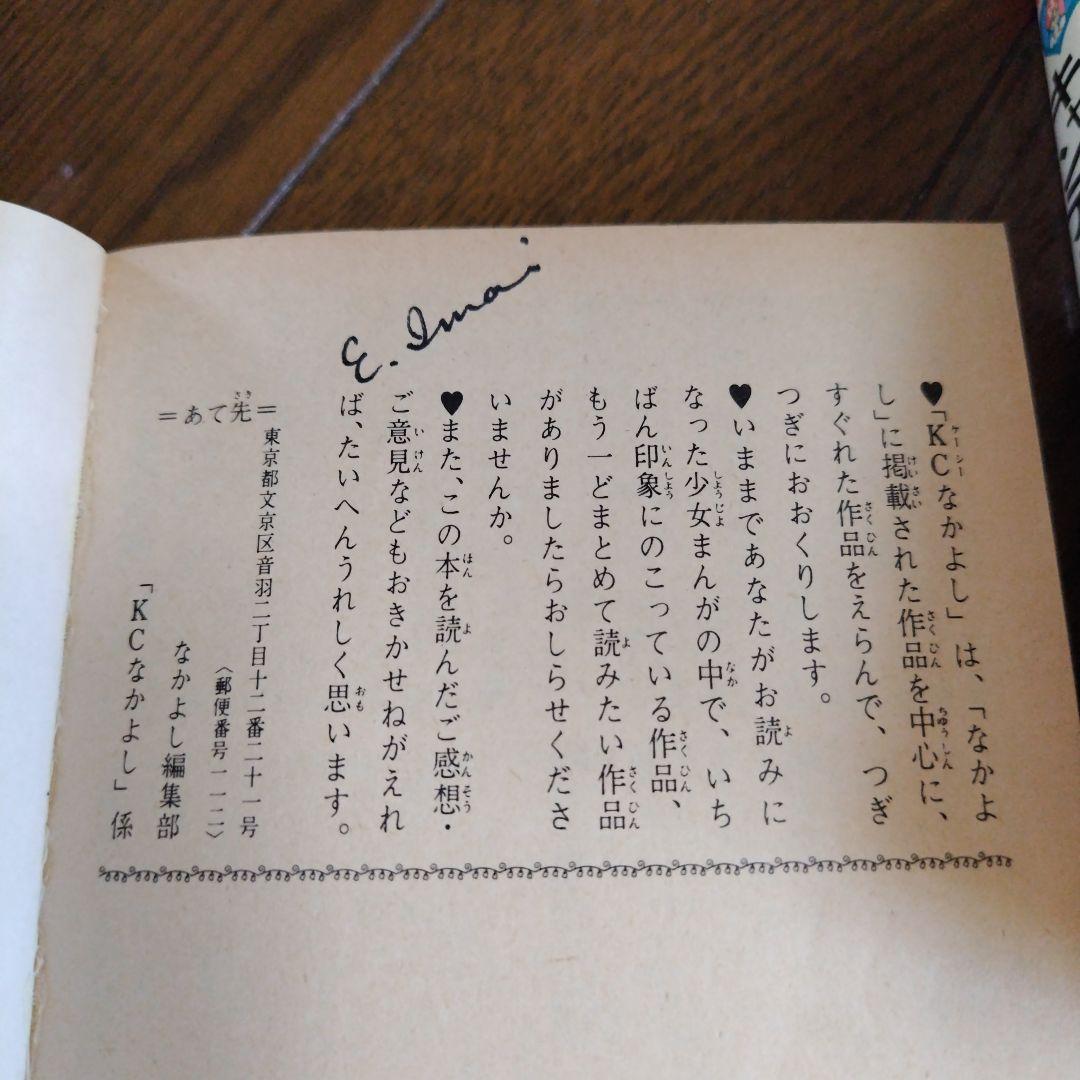 E. Imai
♥「KCなかよし」は、「なかよ
し」に掲載された作品を中心に、
すぐれた作品をえらんで、つぎ
つぎにおおくりします。
♥いままであなたがお読みに
なった少女まんがの中で、いち
ばん印象にのこっている作品、
もう一どまとめて読みたい作品
がありましたらおしらせくださ
いませんか。
♥また、この本を読んだご感想・
ご意見などもおきかせねがえれ
ば、たいへんうれしく思います。
＝あて先＝
東京都文京区音羽二丁目十二番二十一号
〈郵便番号一一二〉
なかよし編集部
「KCなかよし」係